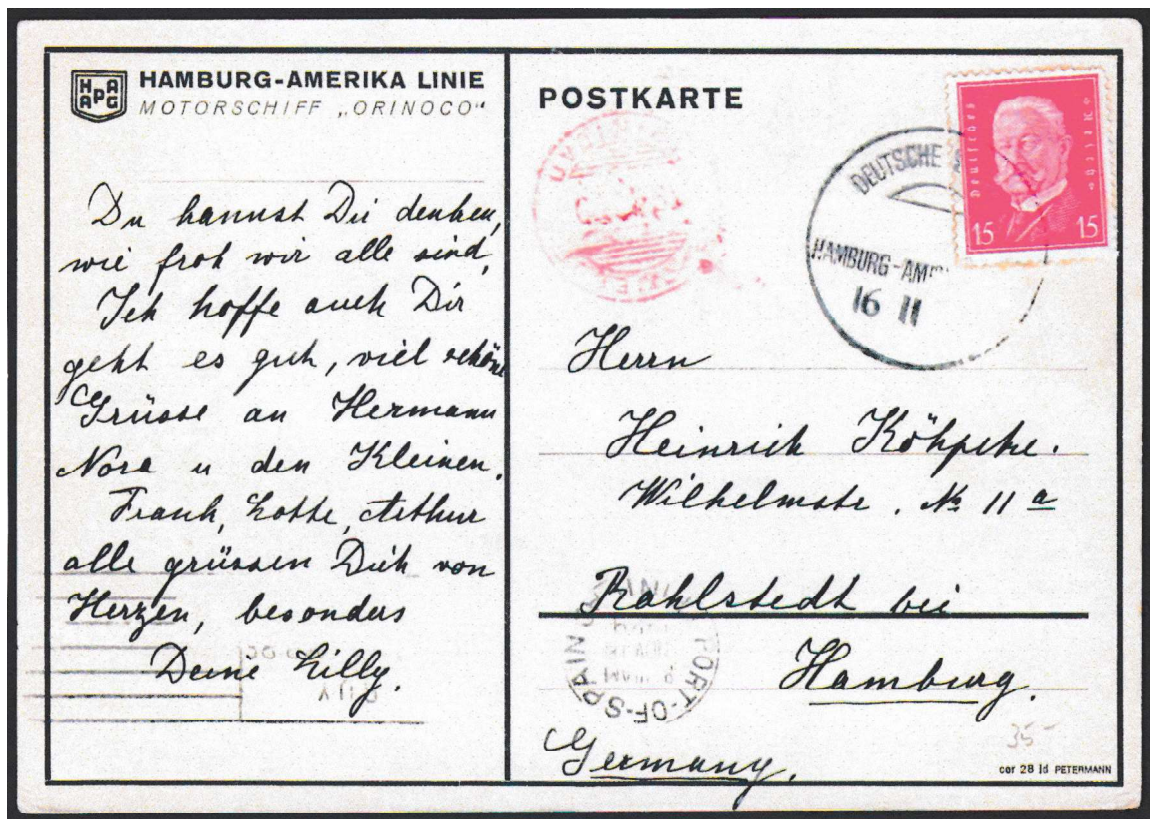 HAPAG
HAMBURG-AMERIKA LINIE
MOTORSCHIFF „ORINOCO"
Du kannst Dir denken,
wie froh wir alle sind,
Ich hoffe auch Dir
geht es gut, viel schöne
Grüsse an Hermann
Nora u den Kleinen.
Frank, Lotte, Arthur
alle grüssen Dich von
Herzen, besonders
Deine Lilly.
POSTKARTE
DEUTSCHE
HAMBURG-AM
16 11
Deutsches Reich
15 15
Herrn
Heinrich
Wilhelmstr. № 11 a
Rahlstedt bei
Hamburg.
Germany.
PORT-OF-SPAIN
35-
cor 28 ld PETERMANN